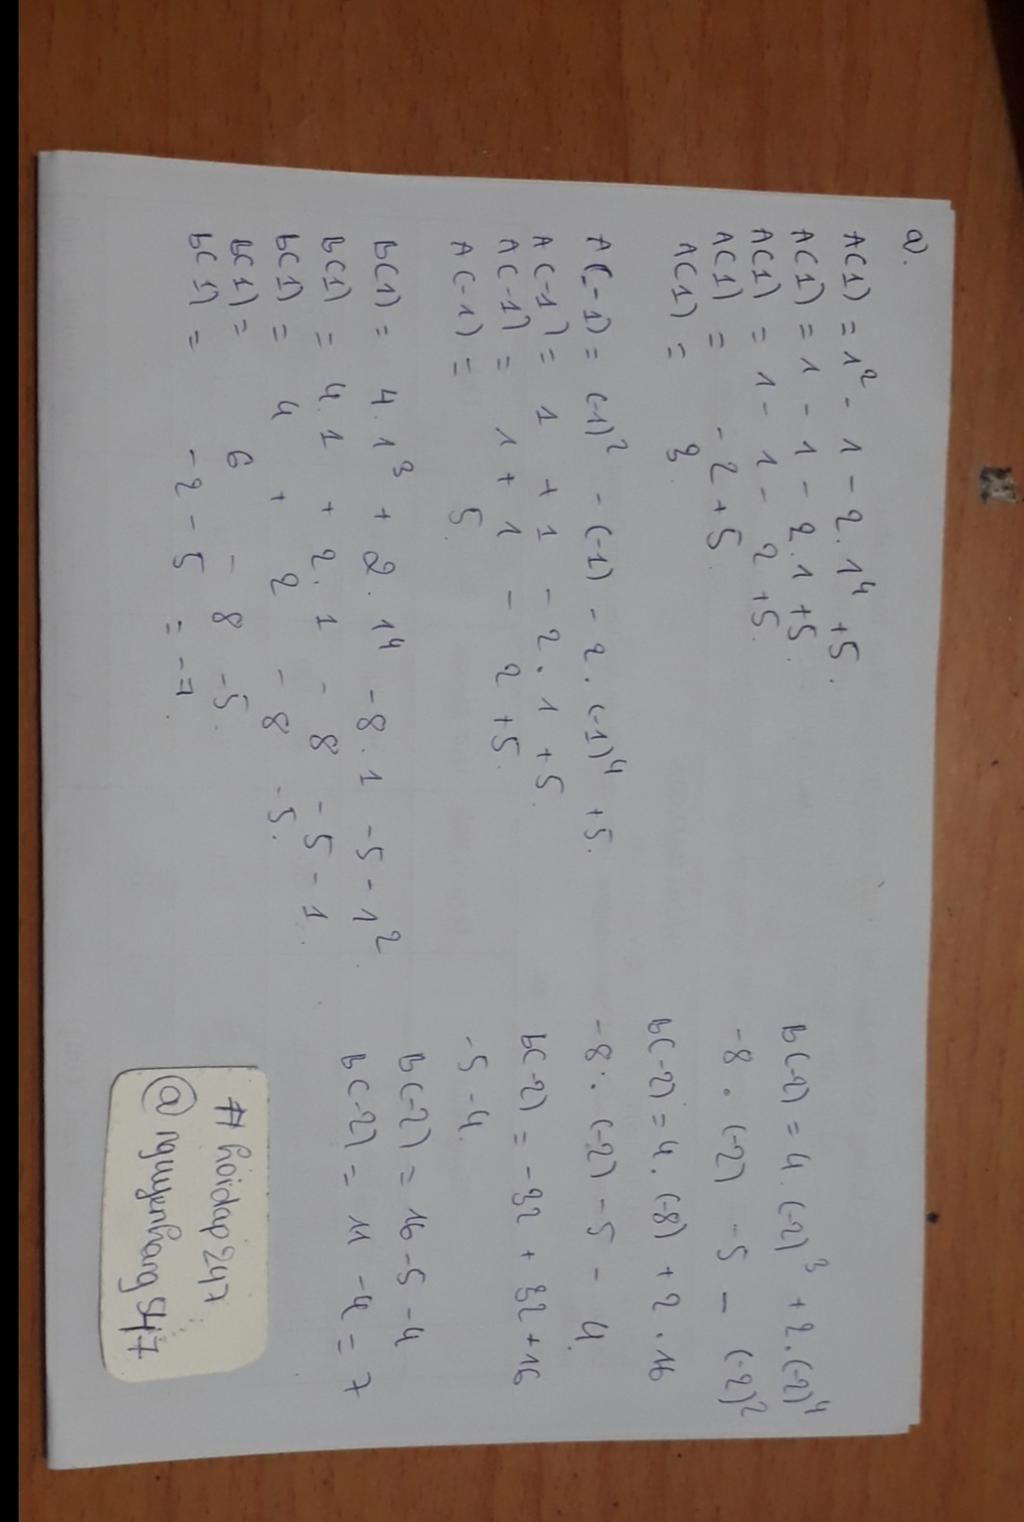 a).
A(1) = 1² - 1 - 2.1⁴ + 5.
A(1) = 1 - 1 - 2.1 + 5.
A(1) = 1 - 1 - 2 + 5.
A(1) = - 2 + 5.
A(1) = 3
A(-1) = (-1)² - (-1) - 2.(-1)⁴ + 5.
A(-1) = 1 + 1 - 2.1 + 5.
A(-1) = 1 + 1 - 2 + 5.
A(-1) = 5.
B(1) = 4.1³ + 2.1⁴ - 8.1 - 5 - 1²
B(1) = 4.1 + 2.1 - 8 - 5 - 1
B(1) = 4 + 2 - 8 - 5.
B(1) = 6 - 8 - 5.
B(1) = - 2 - 5 = -7
B(-2) = 4.(-2)³ + 2.(-2)⁴
-8.(-2) - 5 - (-2)²
B(-2) = 4.(-8) + 2.16
-8.(-2) - 5 - 4.
B(-2) = -32 + 32 + 16
-5 - 4.
B(-2) = 16 - 5 - 4
B(-2) = 11 - 4 = 7
#hoidap247
@nguyenhang547